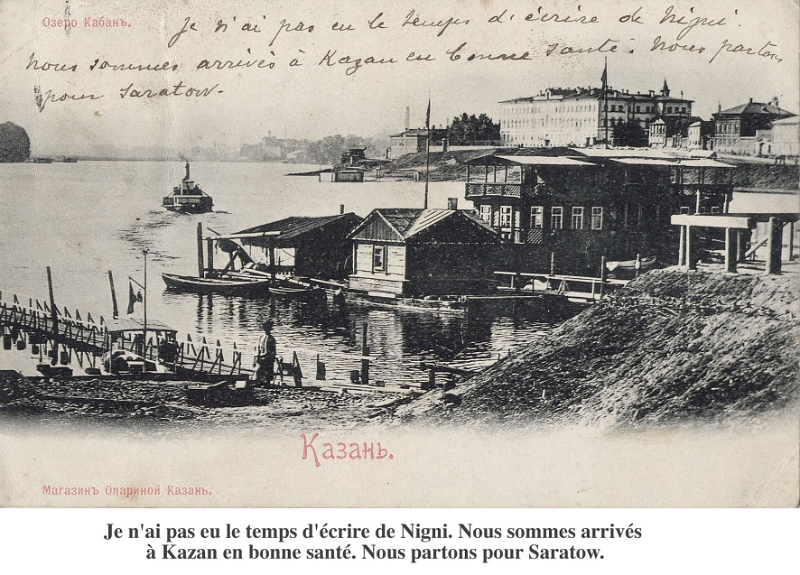 Озеро Кабанъ.
Je n'ai pas eu le temps d'écrire de Nigni.
Nous sommes arrivés à Kazan en bonne santé. Nous partons
pour Saratow.
Казань.
Магазинъ Опариной Казань.
Je n'ai pas eu le temps d'écrire de Nigni. Nous sommes arrivés
à Kazan en bonne santé. Nous partons pour Saratow.